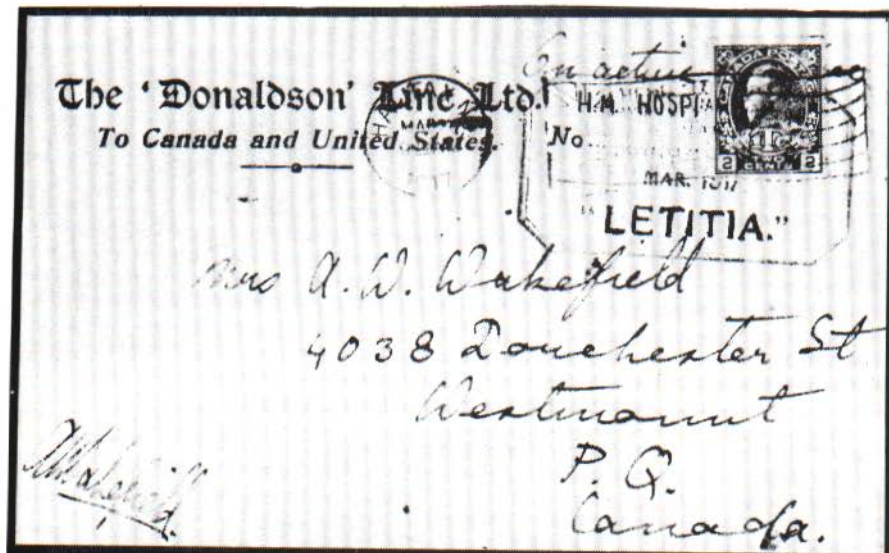 On active
The 'Donaldson' Line Ltd.
To Canada and United States.
HALIFAX
MAR
H.M. HOSPI
No
MAR. 1917
"LETITIA."
2 CENTS 2
Mrs A. W. Wakefield
4038 Dorchester St
Westmount
P. Q.
Canada.
AWakefield